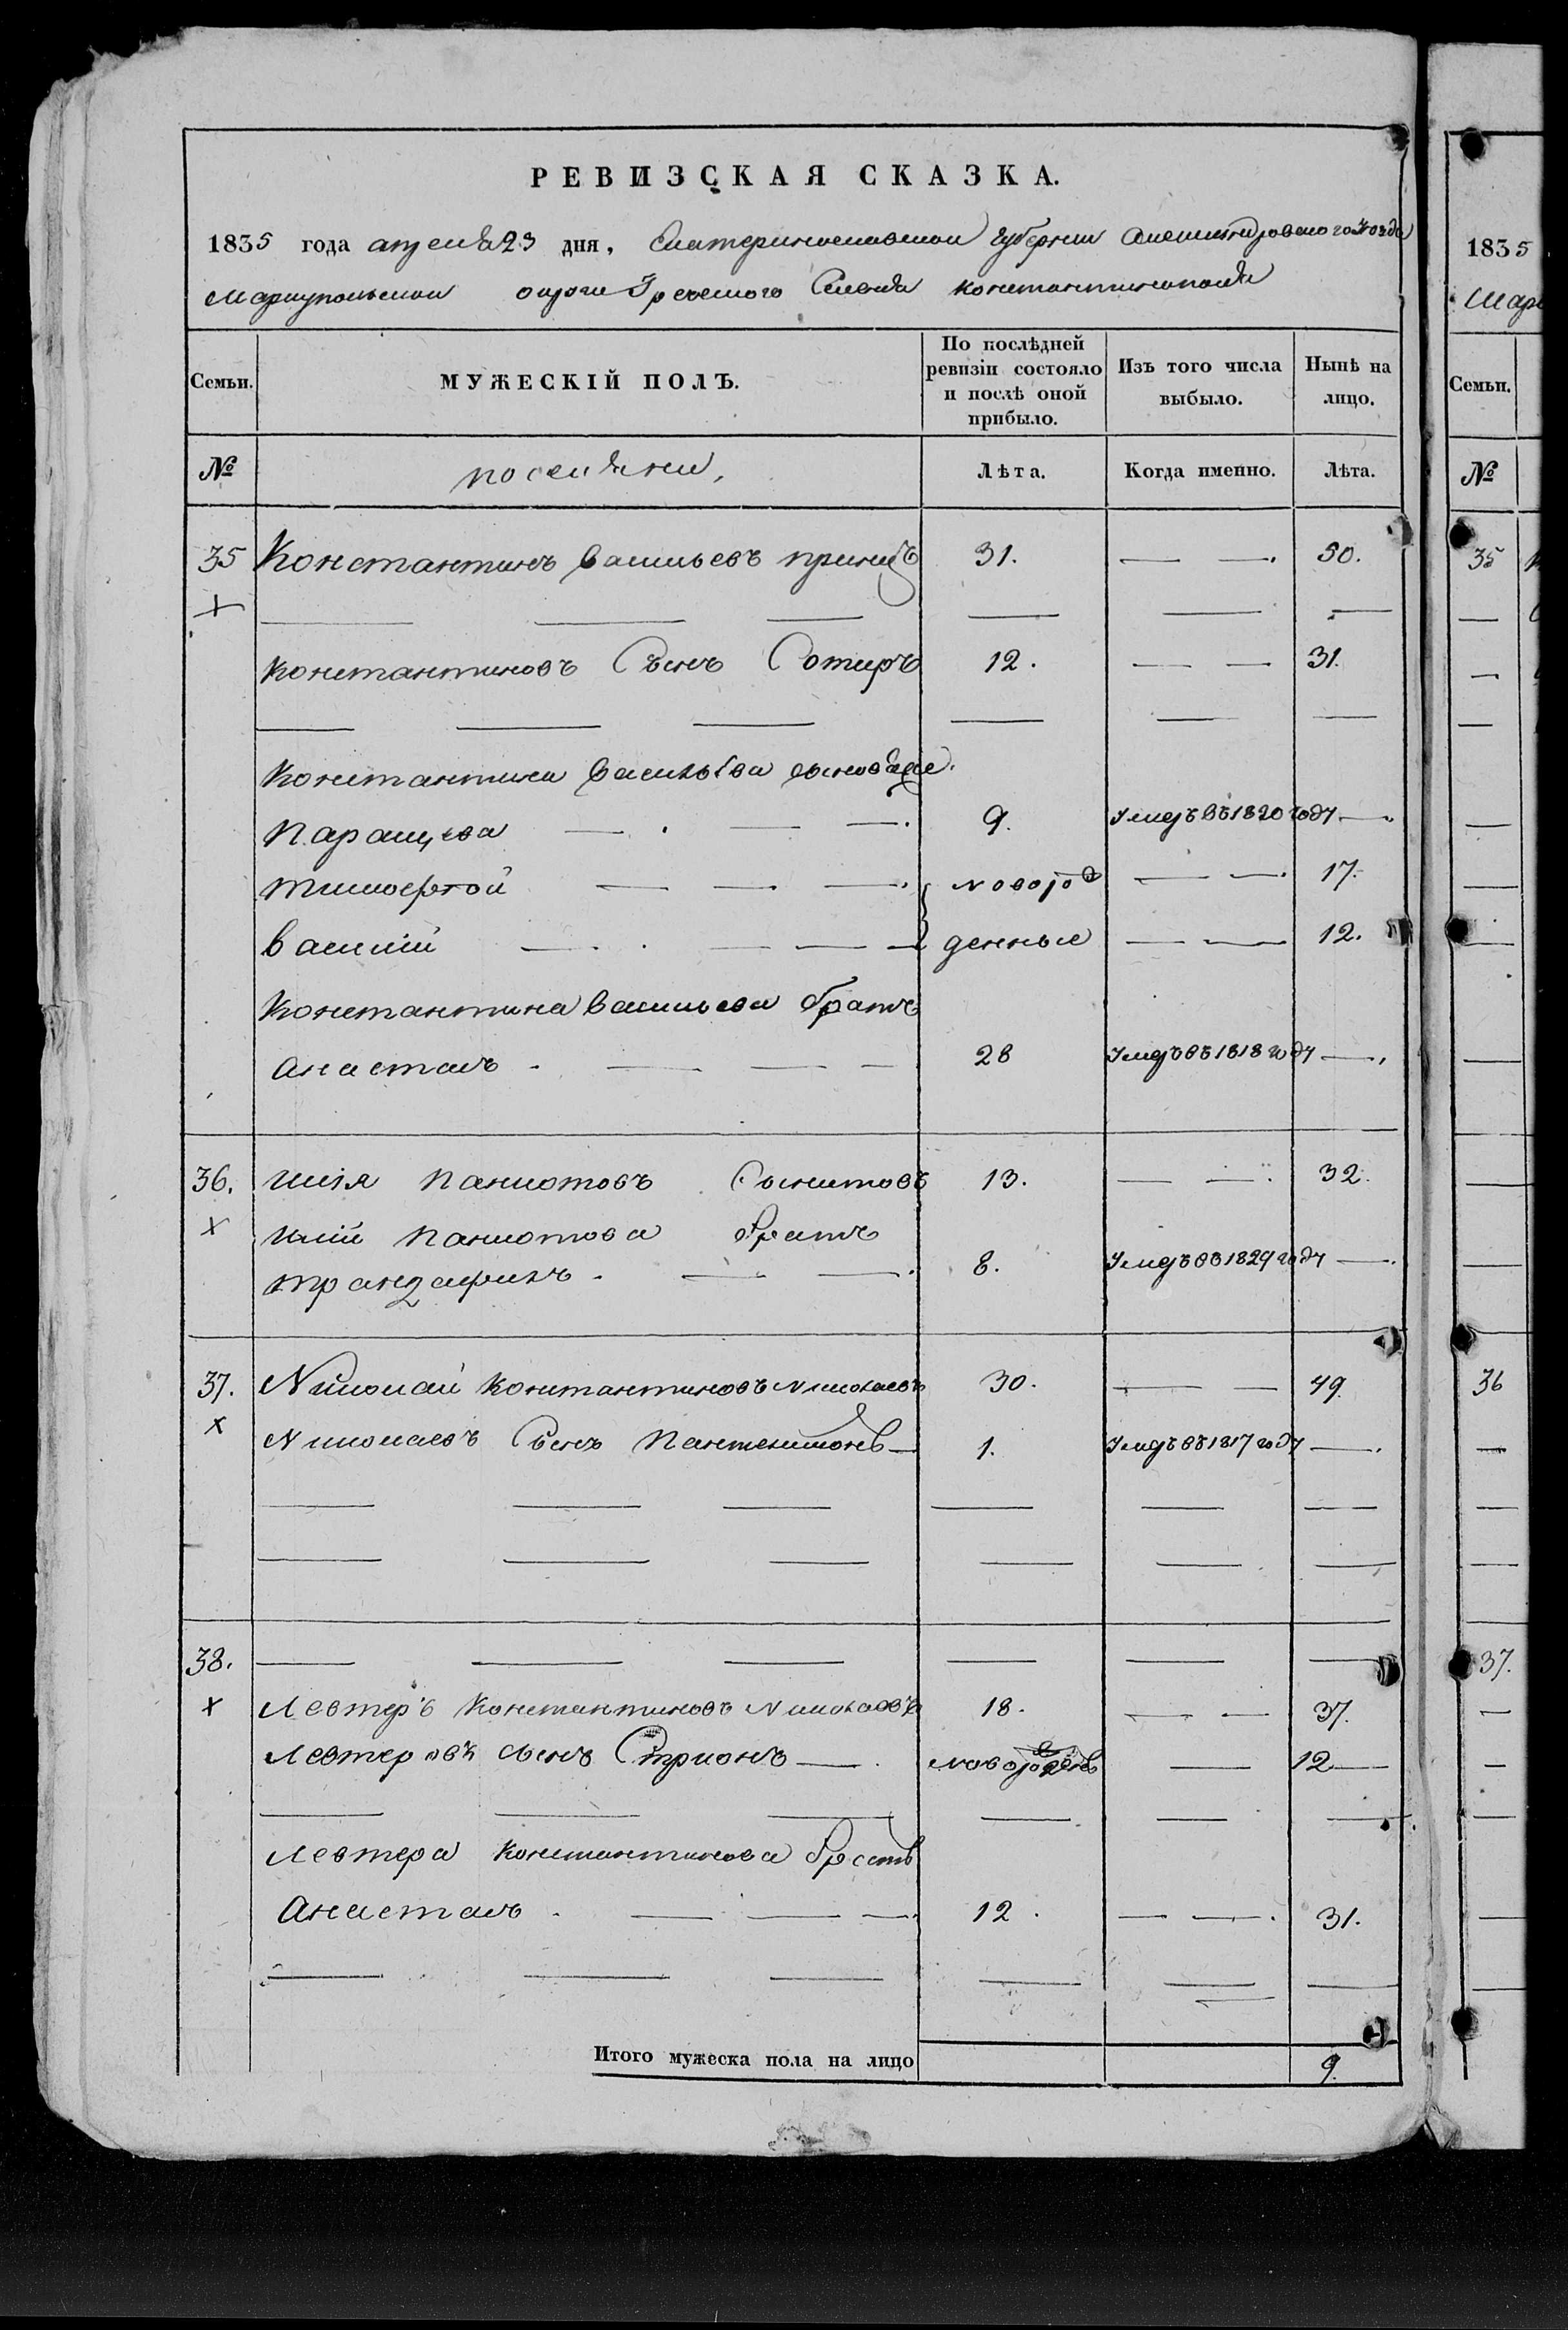 РЕВИЗСКАЯ СКАЗКА.
1835 года апреля 23 дня, Екатеринославской губернии Александровского уезда
Мариупольской округи Греческого Селения константинополя
Семьи. МУЖЕСКІЙ ПОЛЪ. По послѣдней ревизіи состояло и послѣ оной прибыло. Изъ того числа выбыло. Нынѣ на лицо.
№ поселяни, Лѣта. Когда именно. Лѣта.
35 Константинъ васильевъ 31. — — 50.
константиновъ Сынъ Сотиръ 12. — — 31.
Константина васильева сыновья
Параскева — — — 9. умеръ въ 1820 году —
тимофей — — — новорож — — 17.
василий — — — денные — — 12.
Константина васильева братъ
анастасъ — — — 28 умеръ въ 1818 году —
36. илия паниотовъ 13. — — 32.
илии паниотова братъ
трандафилъ — — 8. умеръ въ 1829 году —
37. Николай константиновъ николаевъ 30. — — 49.
Николаевъ Сынъ пантелимонъ — 1. умеръ въ 1817 году —
38.
левтеръ константиновъ николаевъ 18. — — 37.
левтеровъ сынъ — новорожденъ — 12 —
левтера константинова братъ
анастасъ — — — 12. — — 31.
Итого мужеска пола на лицо 9.
1835
Мари
Семьи.
№
35
36
37.